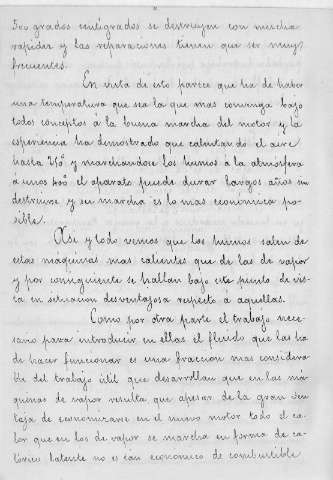 500 grados centígrados se destruyen con mucha
rapidez y las reparaciones tienen que ser muy
frecuentes.
En vista de esto parece que ha de haber
una temperatura que sea la que mas convenga bajo
todos conceptos á la buena marcha del motor y la
esperiencia ha demostrado que calentando el aire
hasta y marchandose los humos á la atmósfera
á unos 400° el aparato puede durar largos años sin
destruirse y su marcha es lo mas economica po-
sible.
Asi y todo vemos que los humos salen de
estas máquinas mas calientes que de las de vapor
y por consiguiente se hallan bajo este punto de vis-
ta en situacion desventajosa respecto á aquellas.
Como por otra parte el trabajo nece-
sario para introducir en ellas el fluido que las ha
de hacer funcionar es una fraccion mas considera-
ble del trabajo útil que desarrollan que en las má-
quinas de vapor resulta que apesar de la gran ven
taja de economizarse en el nuevo motor todo el ca-
lor que en los de vapor se marcha en forma de ca-
lórico latente no es tan economico de combustible